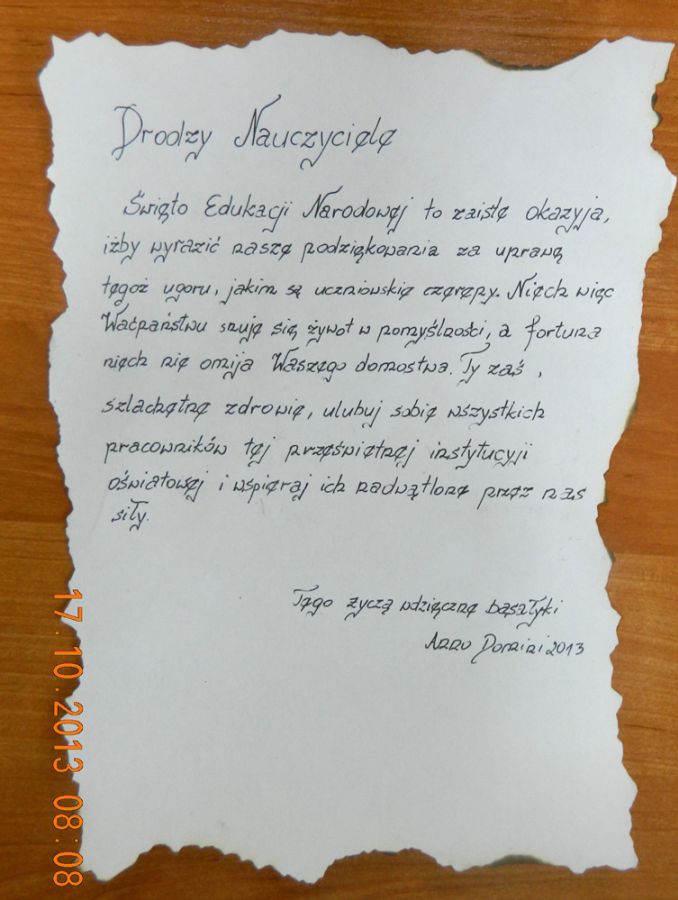 Drodzy Nauczyciele
Święto Edukacji Narodowej to zaiste okazyja,
iżby wyrazić nasze podziękowania za uprawę
tegoż ugoru, jakim są uczniowskie czerepy. Niech więc
Waćpaństwu snuje się żywot w pomyślności, a fortuna
niech nie omija Waszego domostwa. Ty zaś,
szlachetne zdrowie, ulubuj sobie wszystkich
pracowników tej prześwietnej instytucyji
oświatowej i wspieraj ich nadwątlone przez nas
siły.
Tego życzą wdzięczne bąsałyki
Anno Domini 2013
17.10.2013 08:08